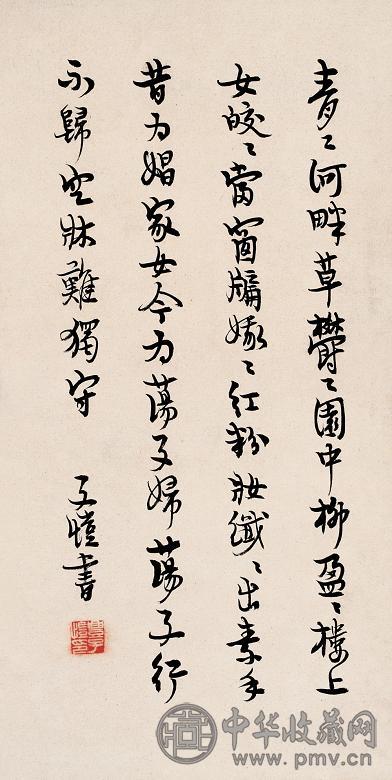 青〻河畔草鬱〻園中柳盈〻樓上
女皎〻當窗牖娥〻紅粉妝纖〻出素手
昔为娼家女今为蕩子婦蕩子行
不歸空牀難獨守 子愷書
中华收藏网
www.pmv.cn